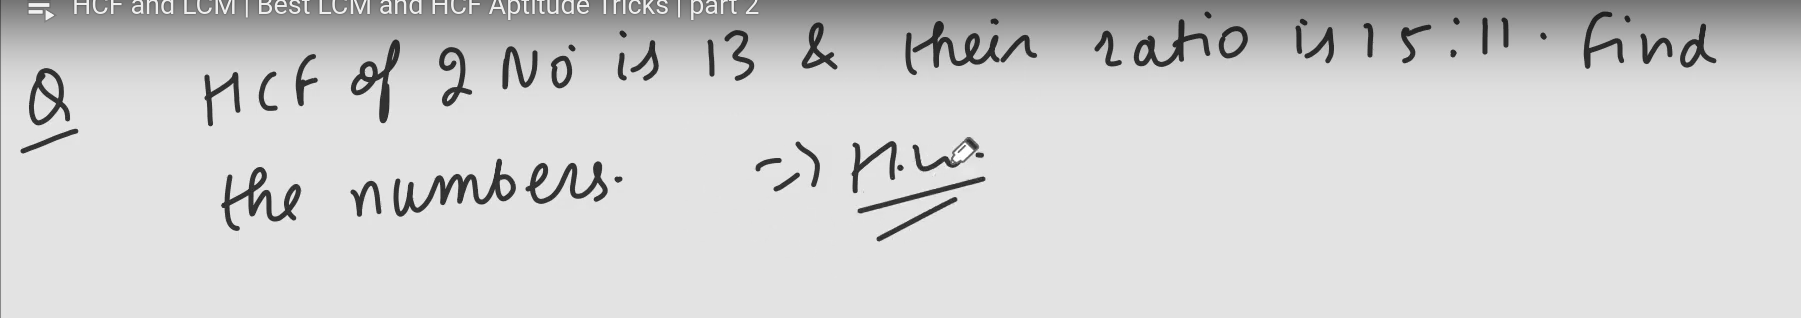 HCF and LCM | Best LCM and HCF Aptitude Tricks | part 2
Q HCF of 2 No is 13 & their ratio is 15:11. find
the numbers. => H.W.